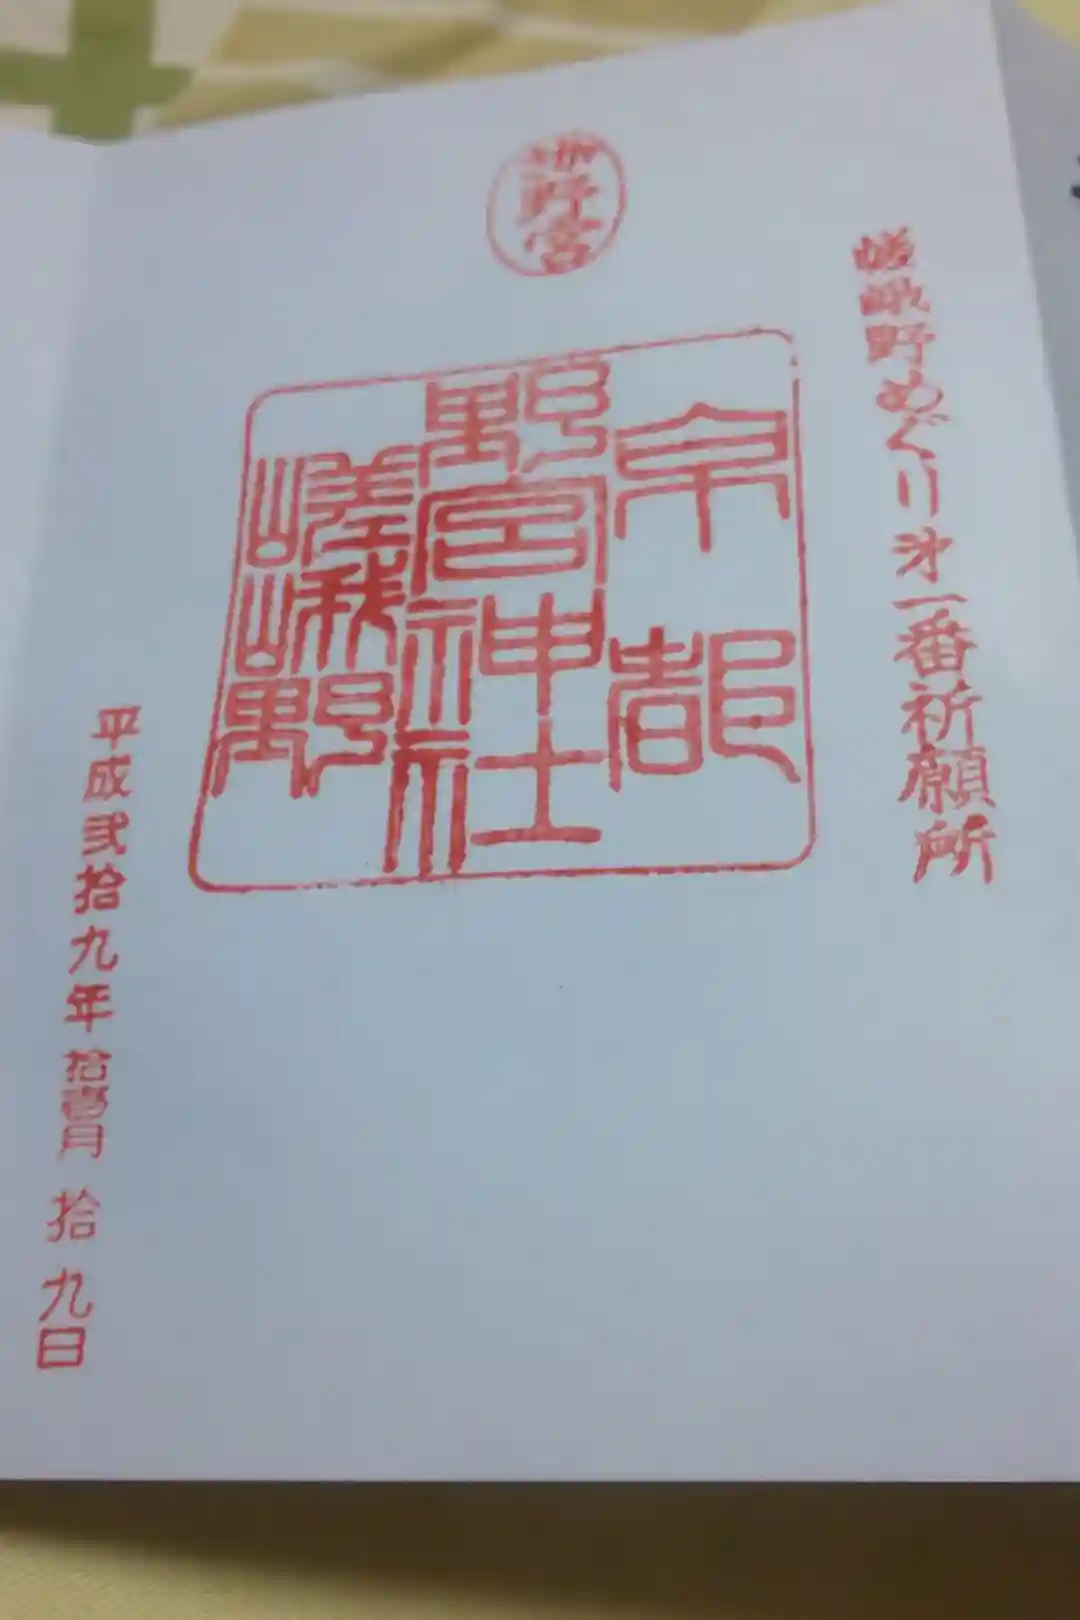 野宮
嵯峨野めぐり㐧一番祈願所
京都
野宮神社
嵯峨野
平成弐拾九年拾壹月拾九日